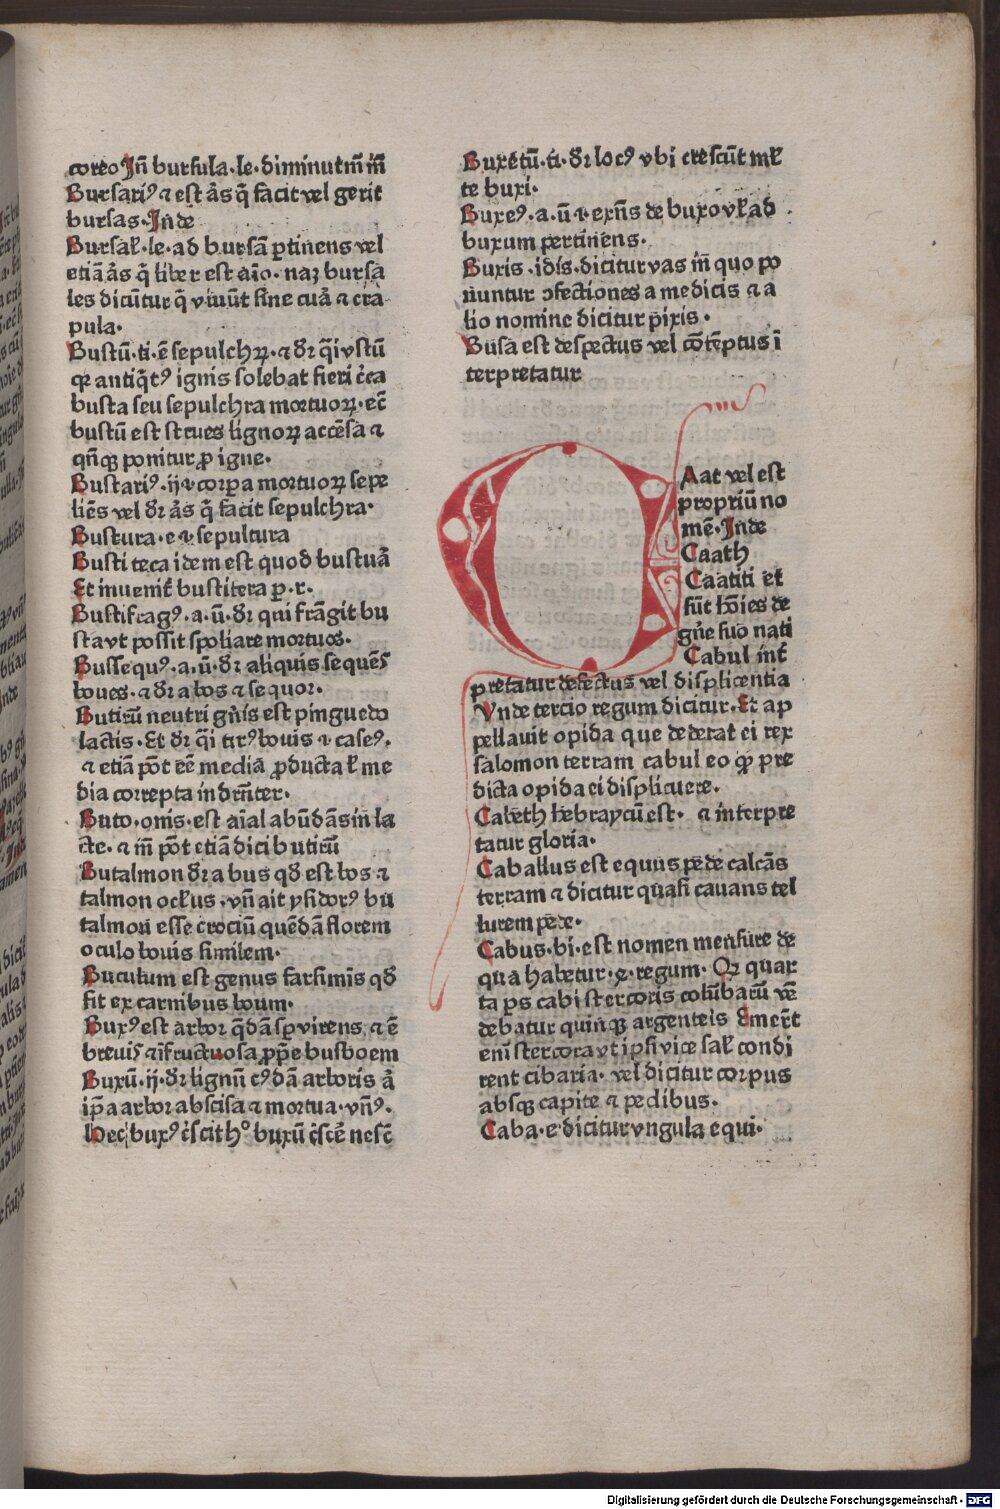 coreo Jn̄ bursula·le·diminutīm īn̄
Bursari⁹ ⁊ est ās q̄ facit vel gerit
bursas·Jnde
Bursal̕·le·ad bursā ꝑtinens vel
etiā ās q̄ liber est aīo·naꝫ bursa
les dicūtur q̄ viuūt sine cuā ⁊ cra
pula·
Bustū·ti·ē sepulchꝝ·⁊ dr̄ q̄i vstū
qꝛ antiq̄t⁹ ignis solebat fieri c̄ca
busta seu sepulchra mortuoꝝ·ec̄
bustū est strues lignoꝝ accēsa ⁊
qn̄qꝫ ponitur ꝓ igne·
Bustari⁹·ij·⁊ corꝑa mortuoꝝ sepe
liēs vel dr̄ ās q̄ facit sepulchra·
Bustura·e·⁊·sepultura
Busti teca idem est quod bustuā
Et inuenit̄ bustitera ꝑ·r·
Bustifrag⁹·a·ū·dr̄ qui frāgit bu
sta vt possit spoliare mortuos·
Bussequ⁹·a·ū·dr̄ aliquis sequēs
boues·⁊ dr̄ a bos ⁊ sequor·
Butirū neutri gn̄is est pinguedo
lactis·Et dr̄ q̄i tir⁹ bouis ⁊ case⁹·
⁊ etiā pōt eē media ꝓducta l̕ me
dia correpta indr̄nter·
Buto·onis·est aīal abūdās in la
cte·⁊ īn̄ pōt etiā dici butirū
Butalmon dr̄ a bus qd̄ est bos ⁊
talmon ocl̕us·vn̄ ait ysidor⁹ bu
talmon esse crociū quēdā florem
oculo bouis similem·
Buculum est genus farsimīs qd̄
fit ex carnibus boum·
Bux⁹ est arbor q̄dā sꝑ virens ⁊ ē
breuis ⁊ īfructuosa ꝓpꝛe busboem
Buxū·ij·dr̄ lignū c⁹dā arboris ā
ip̄a arbor abscisa ⁊ mortua·vn̄⁹·
Hec bux⁹ c̄scit hᵒ buxū c̄scē nesc̄
Buxetū·ti·dr̄ loc⁹ vbi crescūt ml̕
te buxi·
Buxe⁹·a·ū·⁊·exn̄s de buxo vl̕ ad
buxum pertinens·
Buxis·idis·dicitur vas īn̄ quo po
nuntur ↄfectiones a medicis ⁊ a
lio nomine dicitur pixis·
Busa est despectus vel cōtēptus ī
terpretatur
CAat vel est
propriū no
mē·Jnde
Caath
Caatiti et̄
sūt hōies de
gn̄e suo nati
Cabul int̄
pretatur defectus vel displicentia
Vnde tercio regum dicitur·Et ap
pellauit opida que dederat ei rex
salomon terram cabul eo qꝙ pre
dicta opida ei displicuere·
Cabeth hebraycū est· ⁊ interpre
tatur gloria·
Caballus est equus pede calcās
terram ⁊ dicitur quasi cauans tel
lurem pede·
Cabus·bi·est nomen mensure de
qua habetur·4·regum·Qꝛ quar
ta ps cabi stercoris colūbarū vē
debatur quinqꝫ argenteis Emer̄t
enī stercora vt ipsi vice sal̕ condi
rent cibaria· vel dicitur corpus
absqꝫ capite ⁊ pedibus·
Caba·e·dicitur vngula equi·
Digitalisierung gefördert durch die Deutsche Forschungsgemeinschaft - DFG